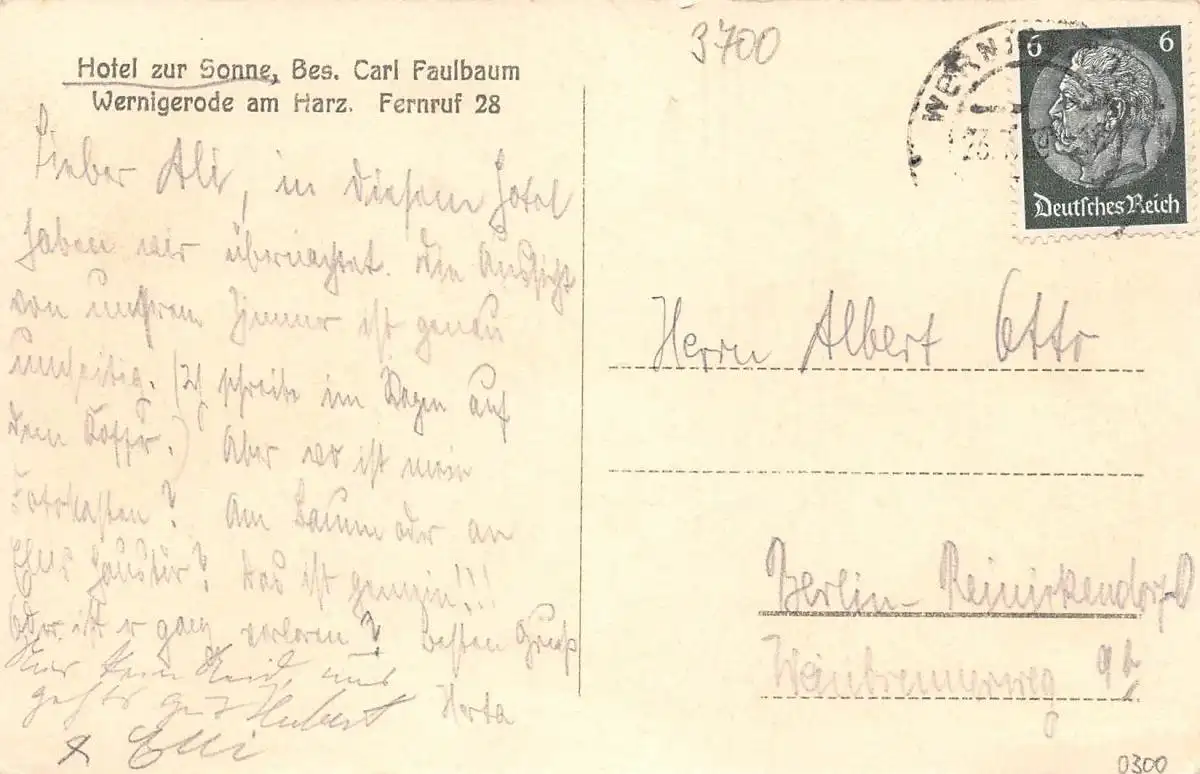 3700
Hotel zur Sonne, Bes. Carl Faulbaum
Wernigerode am Harz. Fernruf 28
WERNI
6 6
Deutsches Reich
Lieber Ali, in diesem Hotel
haben wir übernachtet. Die Aussicht
von unserem Zimmer ist genau
umseitig. (Ich schreibe im Wagen auf
dem Koffer.) Aber wo ist mein
Fotokasten? Am Baum oder an
Ellis Haustür? Das ist gemein!!!
Oder ist er ganz verloren? Besten Gruß
Herta
Nur kein Neid, uns
geht's gut Hubert
& Elli
Herrn Albert Otto
Berlin-Reinickendorf
Weinbrennerweg
0300